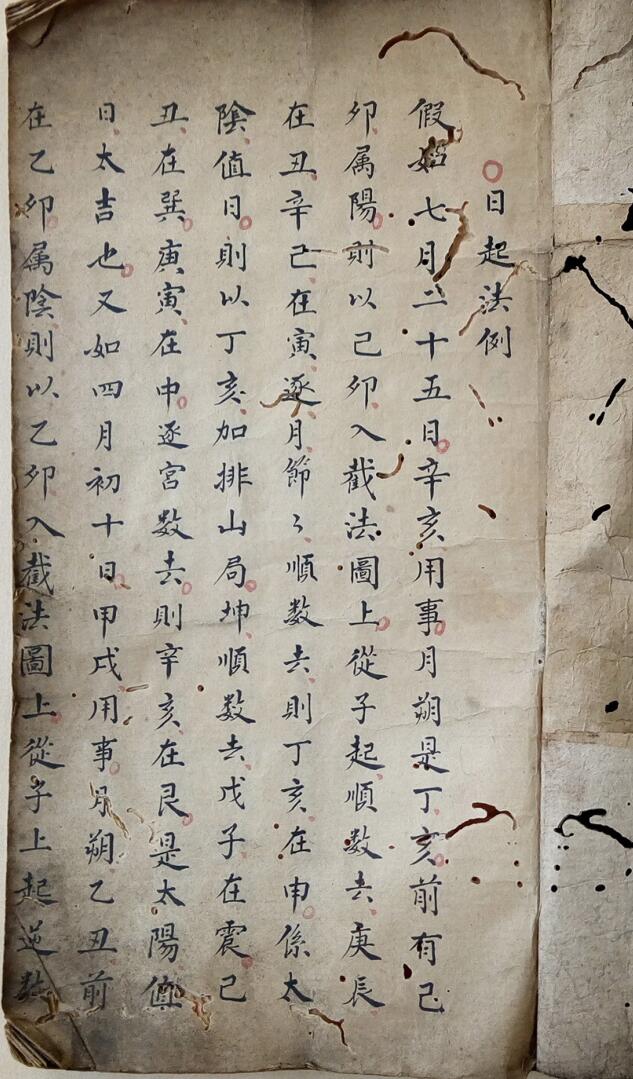 ○日起法例
假如七月二十五日辛亥用事月朔是丁亥前有己
卯属陽則以己卯入截法圖上從子起順数去庚辰
在丑辛己在寅逐月節々順数去則丁亥在申係太
陰值日則以丁亥加排山局坤順数去戊子在震己
丑在巽庚寅在中逐宮数去則辛亥在艮是太陽值
日太吉也又如四月初十日甲戌用事月朔乙丑前
在乙卯属陰則以乙卯入截法圖上從子上起逆数